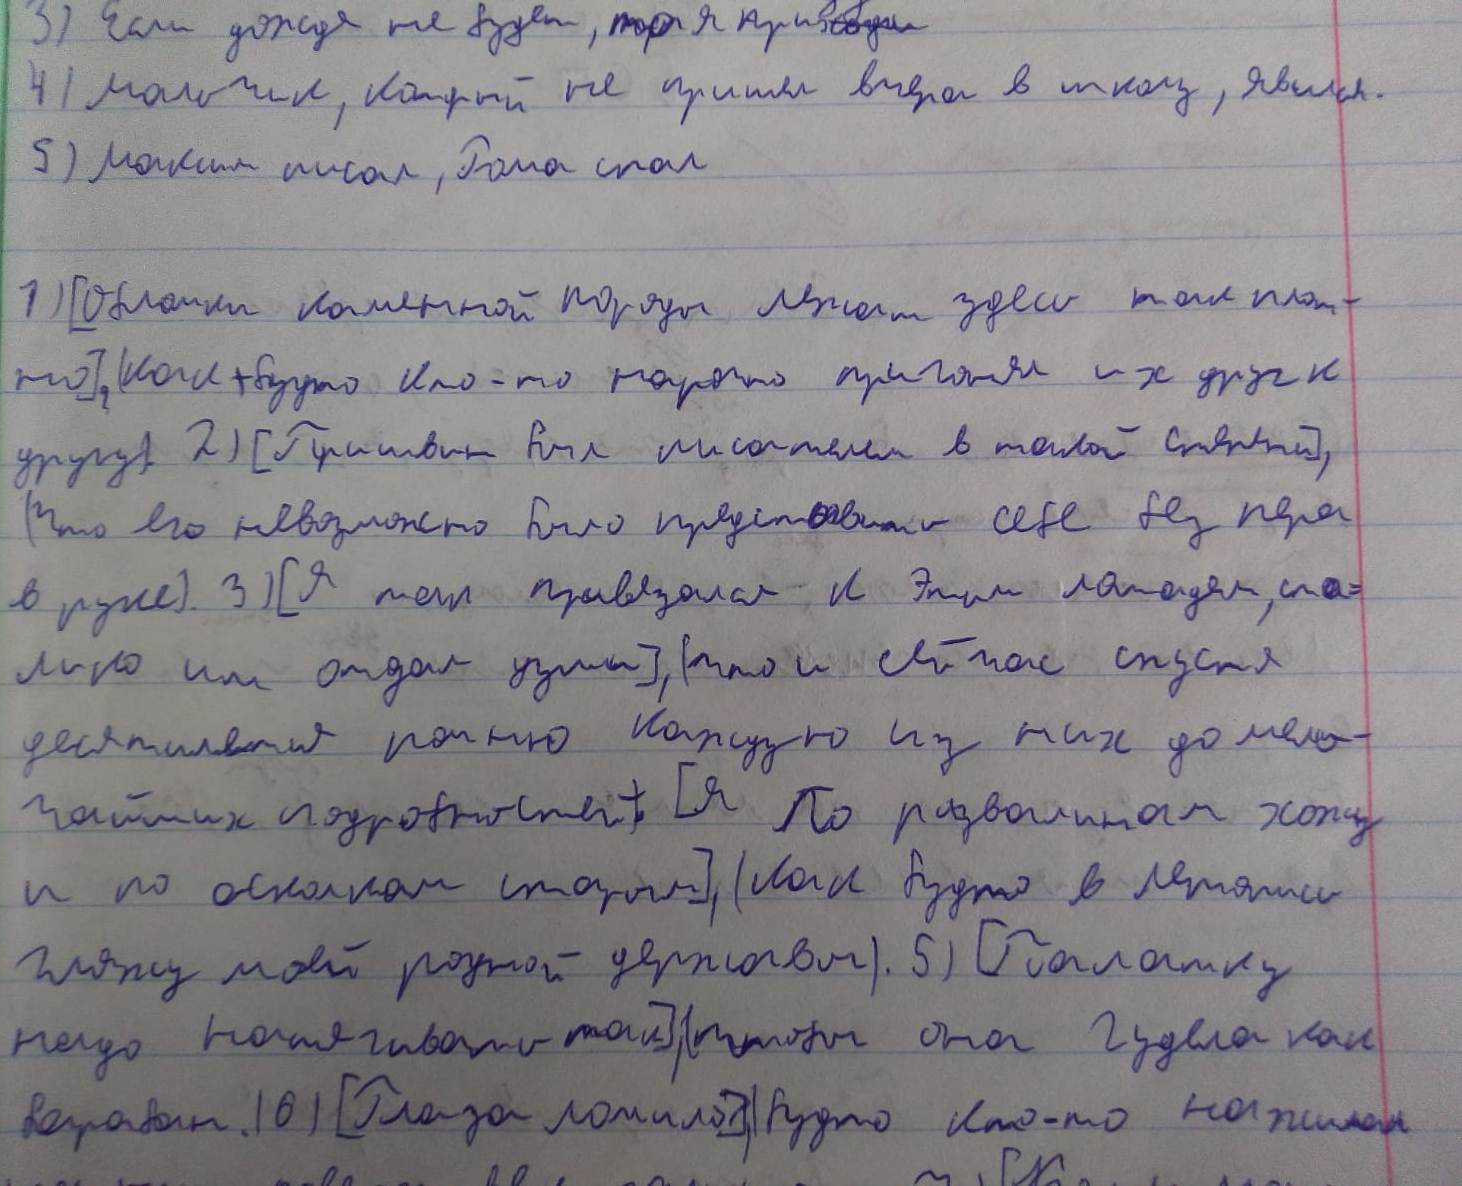 3) Если дождя не будет, то я
4) Мальчик, который не пришел вчера в школу, явился.
5) Максим писал, Рома спал
1) [Обломки каменной породы лежат здесь так плот-
но], (как будто кто-то нарочно пригонял их друг к
другу). 2) [Пришвин был писателем в такой степени],
(что его невозможно было представить себе без пера
в руке). 3) [Я так привязался к этим лошадям, сто-
лько им отдал души], (что и сейчас спустя
десятилетия помню каждую из них до мель-
чайших подробностей). [Я по развалинам хожу
и по осколкам старым], (как будто в летопись
гляжу моей родной державы). 5) [Палатку
надо натягивать так], (чтобы она гудела как
барабан.) 6) [Глаза ломило], (будто кто-то нажимал